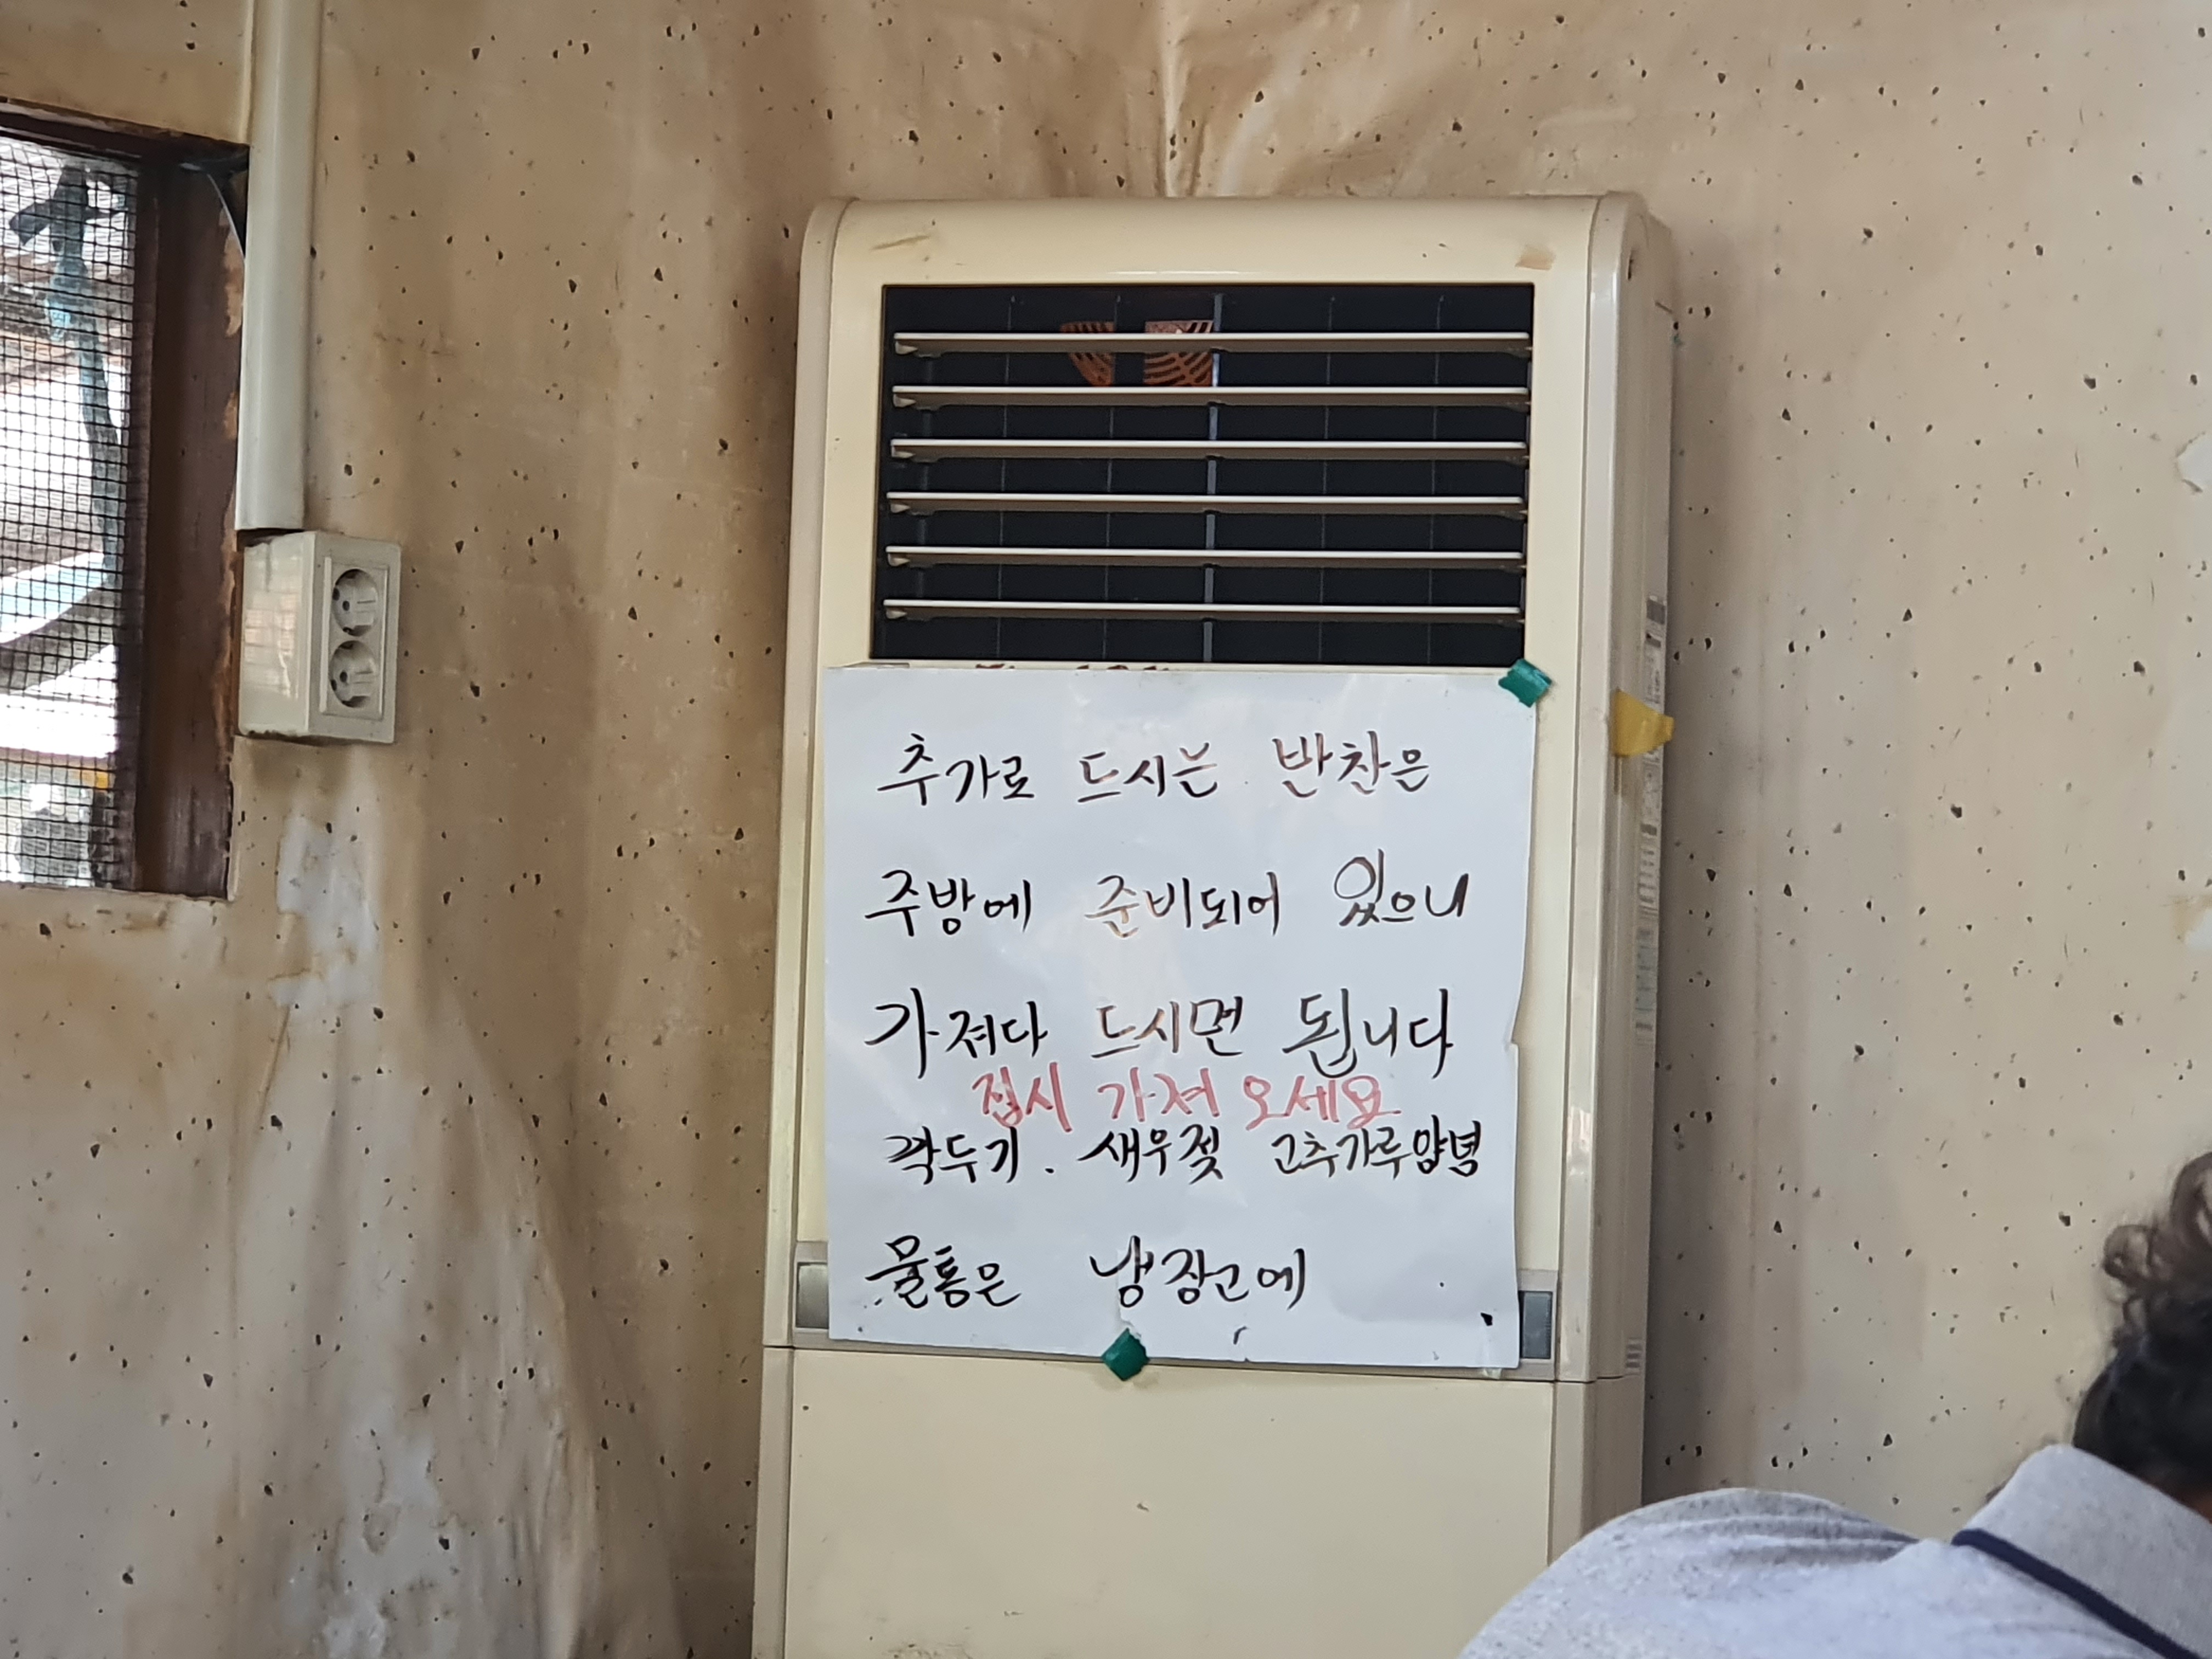 추가로 드시는 반찬은
주방에 준비되어 있으니
가져다 드시면 됩니다
접시 가져 오세요
깍두기. 새우젖 고추가루양념
물통은 냉장고에